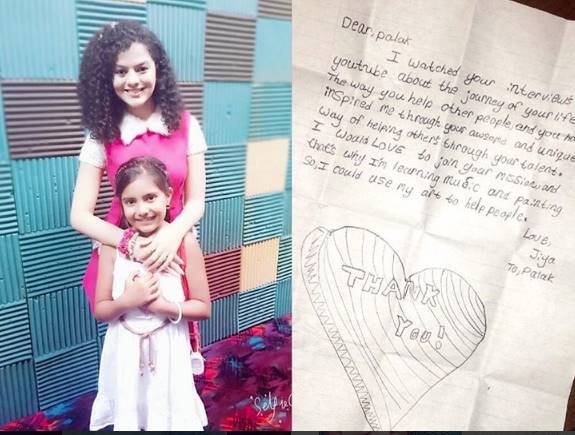 Dear, palak
I watched your intervieut
youtrube about the journey of your life
The way you help other people, and you ha
inspired me through your awsome and unique
way of helping others through your talent.
I would LOVE to join your MISSion and
that's why I'm learning music and painting
So, I could use my art to help people.
Love,
Jiya
To, Palak
THANK
YOU!